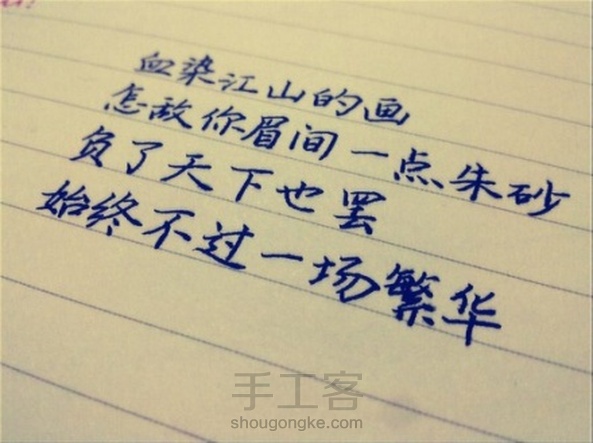 血染江山的画
怎敌你眉间一点朱砂
负了天下也罢
始终不过一场繁华
手工客
shougongke.com